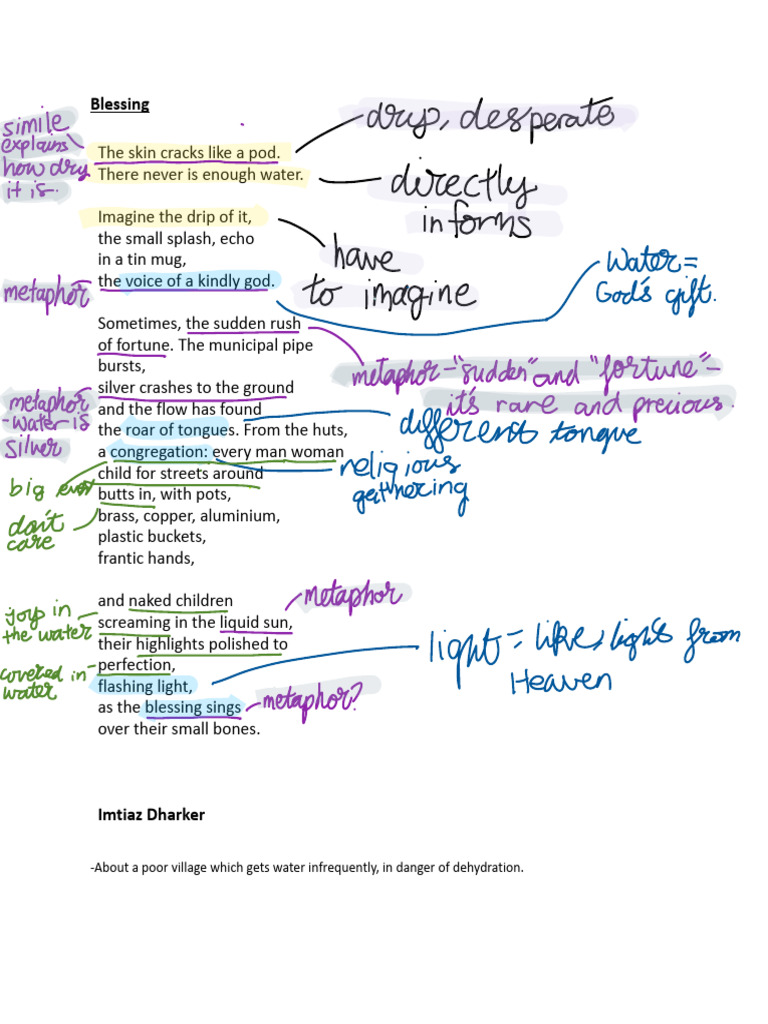 Blessing
simile
explains
how dry
it is.
The skin cracks like a pod.
There never is enough water.
dry, desperate
directly
informs
Imagine the drip of it,
the small splash, echo
in a tin mug,
the voice of a kindly god.
metaphor
have
to imagine
Water =
God's gift.
Sometimes, the sudden rush
of fortune. The municipal pipe
bursts,
silver crashes to the ground
and the flow has found
the roar of tongues. From the huts,
a congregation: every man woman
child for streets around
butts in, with pots,
brass, copper, aluminium,
plastic buckets,
frantic hands,
metaphor - "sudden" and "fortune" -
it's rare and precious.
metaphor
- water is
silver
different tongue
religious
gathering
big
don't
care
and naked children
screaming in the liquid sun,
their highlights polished to
perfection,
flashing light,
as the blessing sings
over their small bones.
metaphor
joy in
the water
covered in
water
light = like, lights from
Heaven
metaphor?
Imtiaz Dharker
-About a poor village which gets water infrequently, in danger of dehydration.